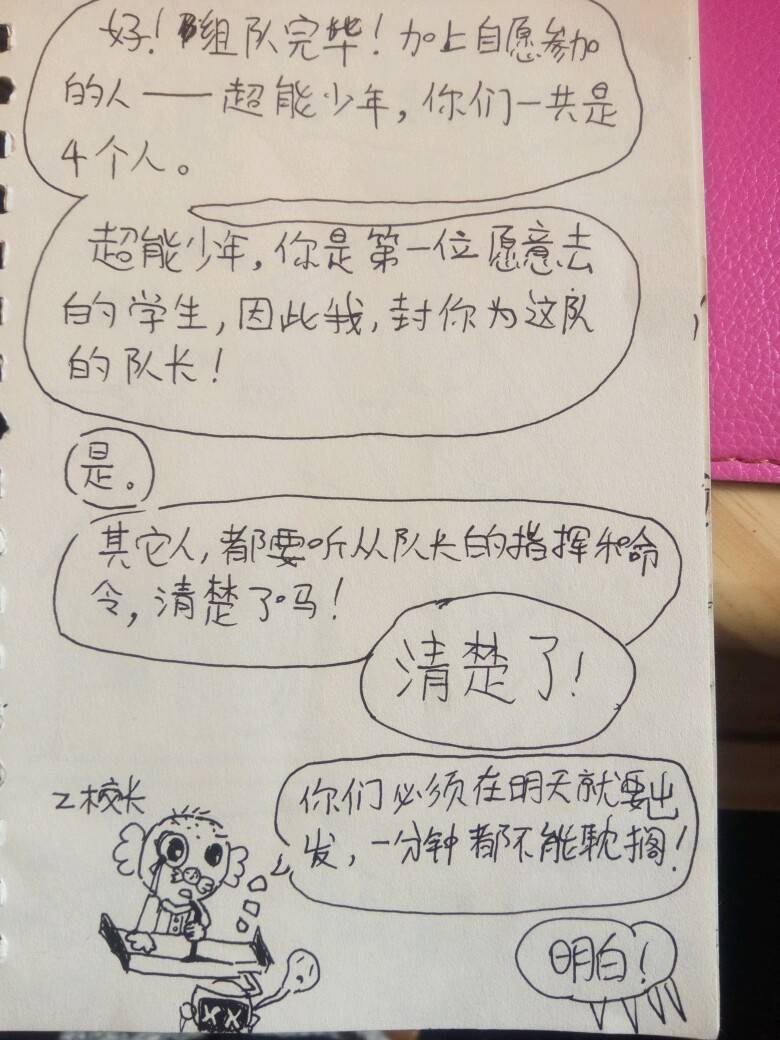 好！组队完毕！加上自愿参加
的人——超能少年，你们一共是
4个人。
超能少年，你是第一位愿意去
的学生，因此我，封你为这队
的队长！
是。
其它人，都要听从队长的指挥和命
令，清楚了吗！
清楚了！
Z校长
你们必须在明天就要出
发，一分钟都不能耽搁！
明白！
XX